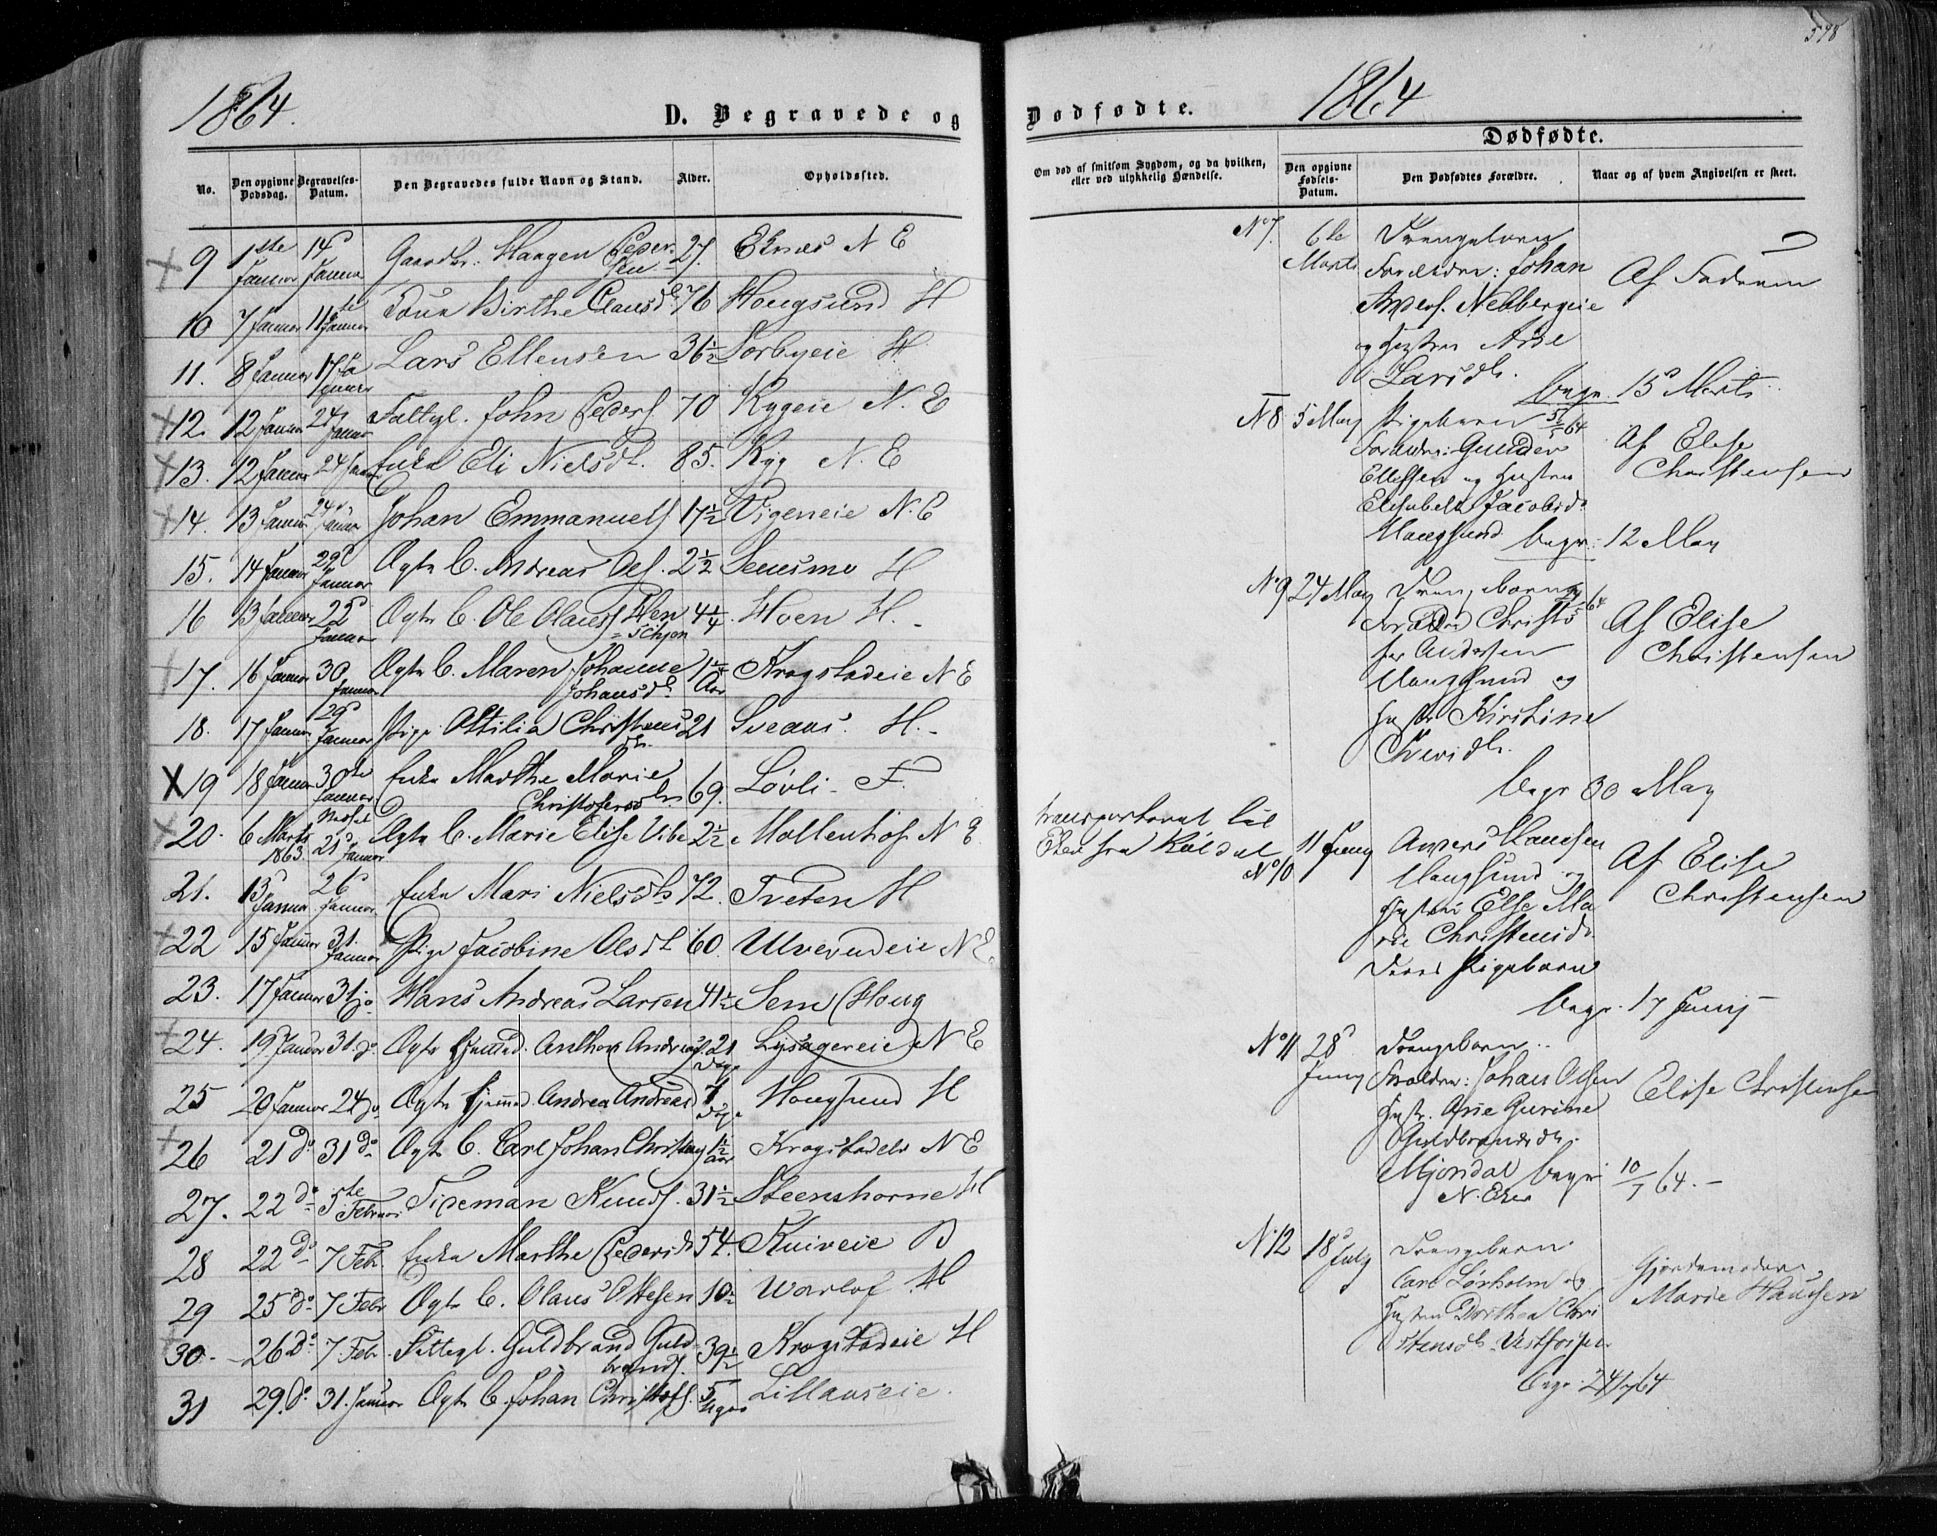 1864.
D. Begravede og
No.
Den opgivne Dødsdag.
Begravelses-Datum.
Den Begravedes fulde Navn og Stand.
Alder.
Opholdssted.
9 1ste Januar 14 Januar Gaardbr. Haagen Pedersen 27. Eknæs N E
10 7 Januar 11te Januar Birthe Clausd. 76 Hougsund H
11. 8 Januar 17 Januar Lars Ellensen 36 1/2 Sorbyeie H.
12. 12 Januar 24 Januar Fattigl. John Peders. 70 Rygeie N. E
13. 12 Januar 24 Januar Enke Eli Nielsd. 85. Ryg N. E
14. 13 Januar 24 Januar Johan Emmanuels. 17 1/2 Vigeneie N. E
15. 14 Januar 22 Januar Ægte B. Andreas Ols. 2 1/2 H
16 13 Januar 25 Januar Ægte B. Ole Olaus 4 1/4 Hoen H.
17. 16 Januar 30 Januar Ægte B. Maren Johanne Johansd. Aar Krogstadeie N E
18. 17 Januar Januar Pige Ottilia Christensd. 21 Sveaas. H.
19 18 Januar 30te Januar Enke Marthe Marie Christofersd. 69. Løvli F.
20. 6 Marts 1863. 21 Januar Ægte B. Marie Elise Vibe 2 1/2 Mollenhof N E.
21. 13 Januar 26 Januar Enke Mari Nielsd. 72. Tveten H
22 15 Januar 31. Januar Pige Jacobine Olsd. 60. Ulverudeie N E.
23. 17 Januar 31 do Hans Andreas Larsen 41 1/2 Sem (Houg
24. 19 Januar 31. do Ægte Hjemmed. Anthon Andreas 21 Dage Lysagereie N E
25 20 Januar 24 do Ægte Hjemmed. Andrea Andreas Dage Hougsund H
26 21 do 31 do Ægte B. Carl Johan Aar Krogstadelv N E
27. 22 do 5te Februar Tideman Knuds. 31 1/2 Steenshorne H
28 22 do 7 Febr. Enke Marthe Pedersd. 54. Kniveie B
29 25 do 7 Febr Ægte B. Olaus Ottesen 10 1/2 Varlof H
30. 26 do 7 Febr. Fattigl. Guldbrand Guldbrands. 39 1/2 Krogstadeie H
31 29. do 31. Januar Ægte B. Johan Christofs. 5 Uger Lillaaseie.
578
Dødfødte.
1864
Dødfødte.
Om død af smitsom Sygdom, og da hvilken,
eller ved ulykkelig Hændelse.
Den opgivne Fødsels-Datum.
Den Dødfødtes Forældre.
Naar og af hvem Angivelsen er skeet.
No 7. 6te Marts Drengebarn
Forældre: Johan
Anders. Nebbergeie
og Hustru
Larsd.
Af Faderen
begr. 15 Marts
N 8 5 May Pigebarn
Forældre: Gunder
Ellefsen og Hustru
Elisabeth Jacobsd.
Hougsund begr: 12 May
Af Elise
Christensen
No 9 24 May Drengebarn
Forældre Christo
fer Andersen
Hougsund og
Hustr Kirstine
Iversd.
Af Elise
Christensen
begr 30 May
transporteret til
Eker fra
No 10 11 Juny Anders Hansen
Hougsund og
Hustru Else Ma
rie Christensd.
Deres Pigebarn
Af Elise
Christensen
begr. 17 Juny
No 11 28 Juny Drengebarn
Forældre: Johan Olsen
Hustr. Anne Gurine
Guldbrandsd.
Mjøndal begr 10/7 64.
N. Eker
Elise Christensen
N 12 18 July Drengebarn
Carl Lørholm og
Hustru Dorthea Chri
stensd. Vestfossen
Gjordemoderen
Marie Hansen
begr. 24/7 64